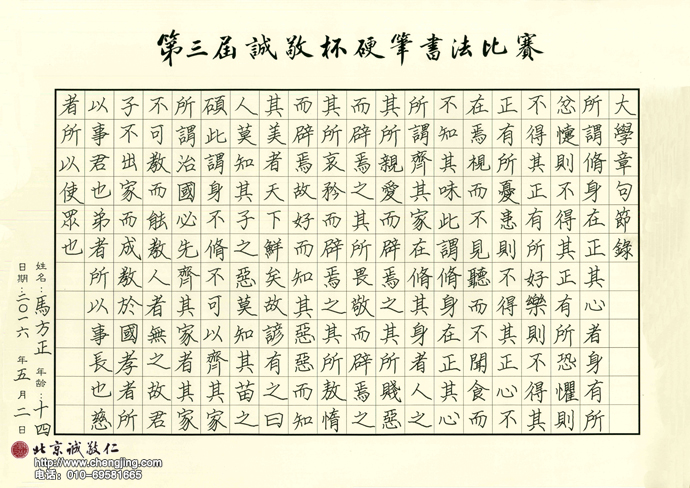 第三屆誠敬杯硬筆書法比賽
大學章句節錄
所謂脩身在正其心者身有所
忿懥則不得其正有所恐懼則
不得其正有所好樂則不得其
正有所憂患則不得其正心不
在焉視而不見聽而不聞食而
不知其味此謂脩身在正其心
所謂齊其家在脩其身者人之
其所親愛而辟焉之其所賤惡
而辟焉之其所畏敬而辟焉之
其所哀矜而辟焉之其所敖惰
而辟焉故好而知其惡惡而知
其美者天下鮮矣故諺有之曰
人莫知其子之惡莫知其苗之
碩此謂身不脩不可以齊其家
所謂治國必先齊其家者其家
不可教而能教人者無之故君
子不出家而成教於國孝者所
以事君也弟者所以事長也慈
者所以使眾也
姓名：馬方正 年齡：十四
日期：二〇一六年五月二日
北京誠敬仁
http://www.chengjing.com
电话：010-69581665